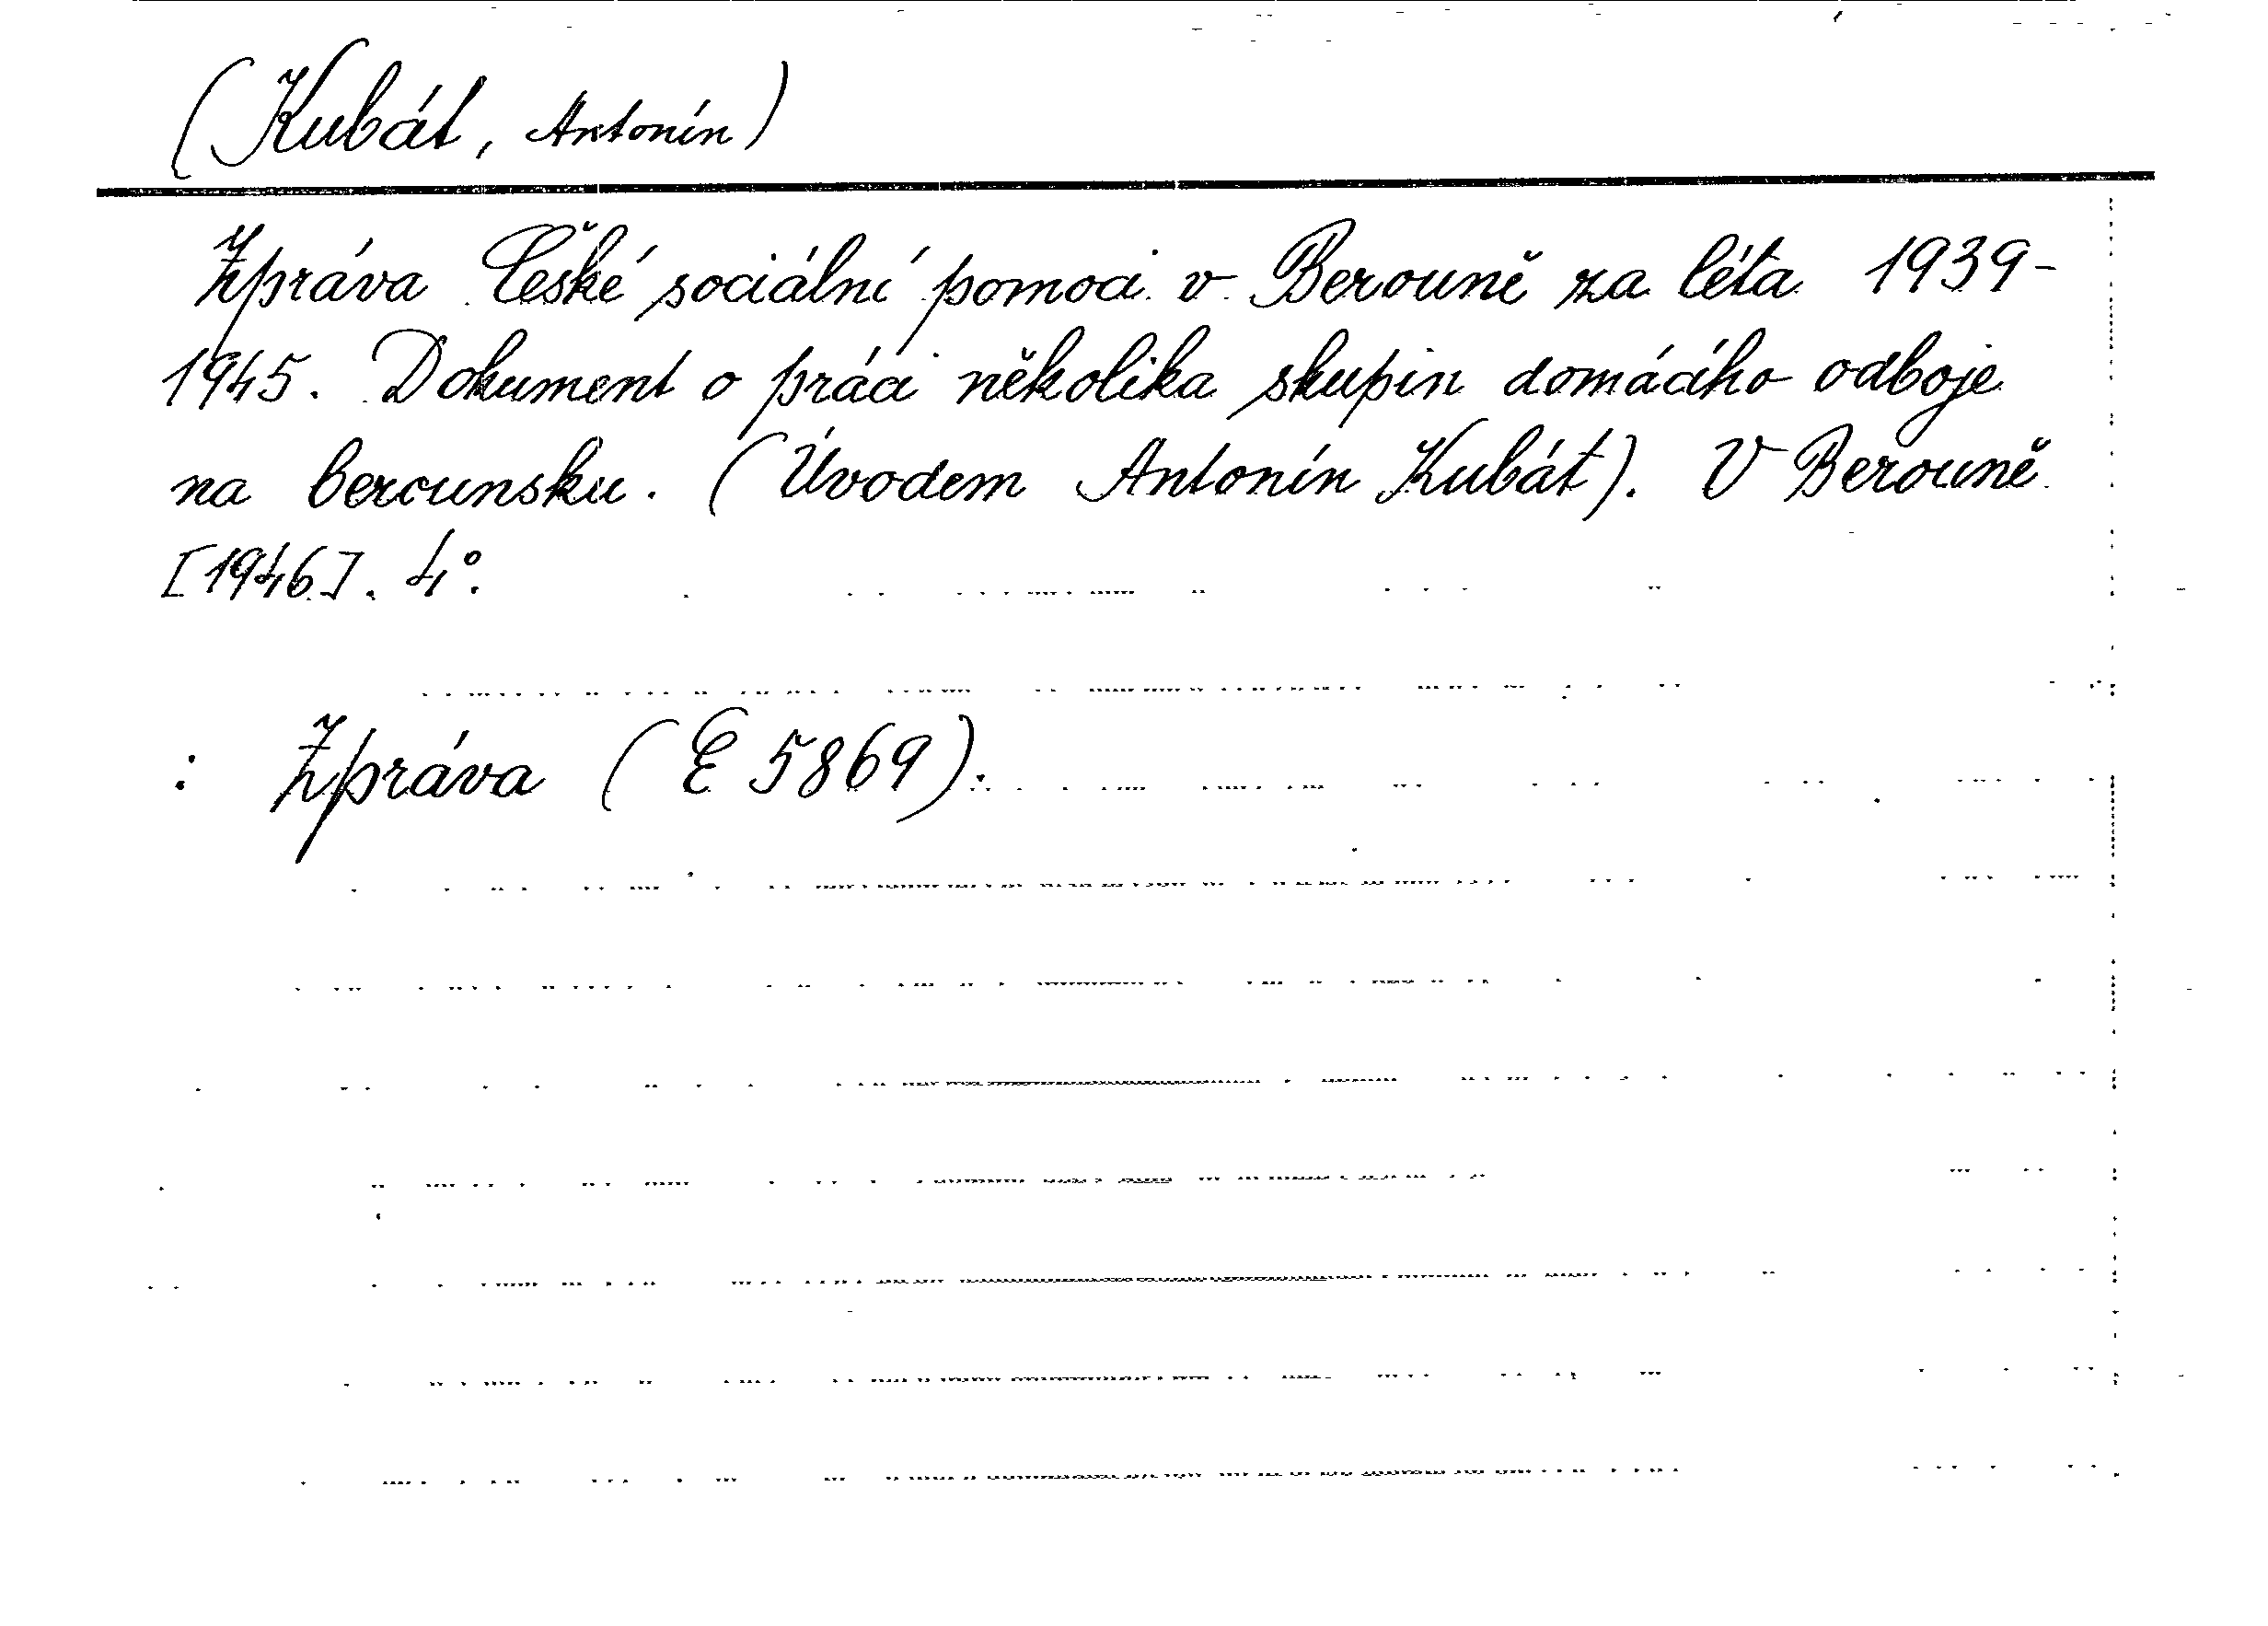 (Kubát, Antonín)
Zpráva České sociální pomoci v Berouně za léta 1939-
1945. Dokument o práci několika skupin domácího odboje
na berounsku. (Úvodem Antonín Kubát). V Berouně
[1946]. 4°.
: Zpráva (E 5869).